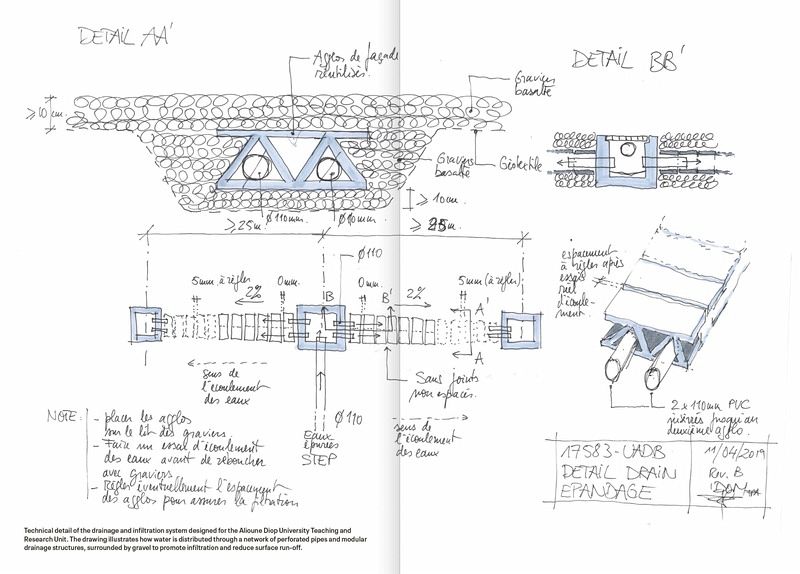 DETAIL AA'
Agglos de façade
réutilisés.
Graviers
basalte
DETAIL BB'
≥ 10 cm.
Graviers
basalte
Géotextile
≥ 10cm
Ø 110mm.
Ø 110mm.
≥ 25m.
≥ 25m.
espacement
à régler après
essai
réel
d'écoule-
ment
Ø110
5mm à régler
0mm.
0mm
5mm (à régler)
2%
B
B'
2%
A'
A
sens de
l'écoulement
des eaux
Sans joints
non espacés.
2 x 110mm PVC
insérés jusqu'au
deuxième agglo.
Ø110
Eaux
épurées
STEP
sens de
l'écoulement
des eaux
NOTE:
- placer les agglos
sur le lit des graviers.
- Faire un essai d'écoulement
des eaux avant de reboucher
avec graviers
- Régler éventuellement l'espacement
des agglos pour assurer la filtration
17583-UADB
DETAIL DRAIN
EPANDAGE
11/04/2019
Rev. B
Technical detail of the drainage and infiltration system designed for the Alioune Diop University Teaching and
Research Unit. The drawing illustrates how water is distributed through a network of perforated pipes and modular
drainage structures, surrounded by gravel to promote infiltration and reduce surface run-off.